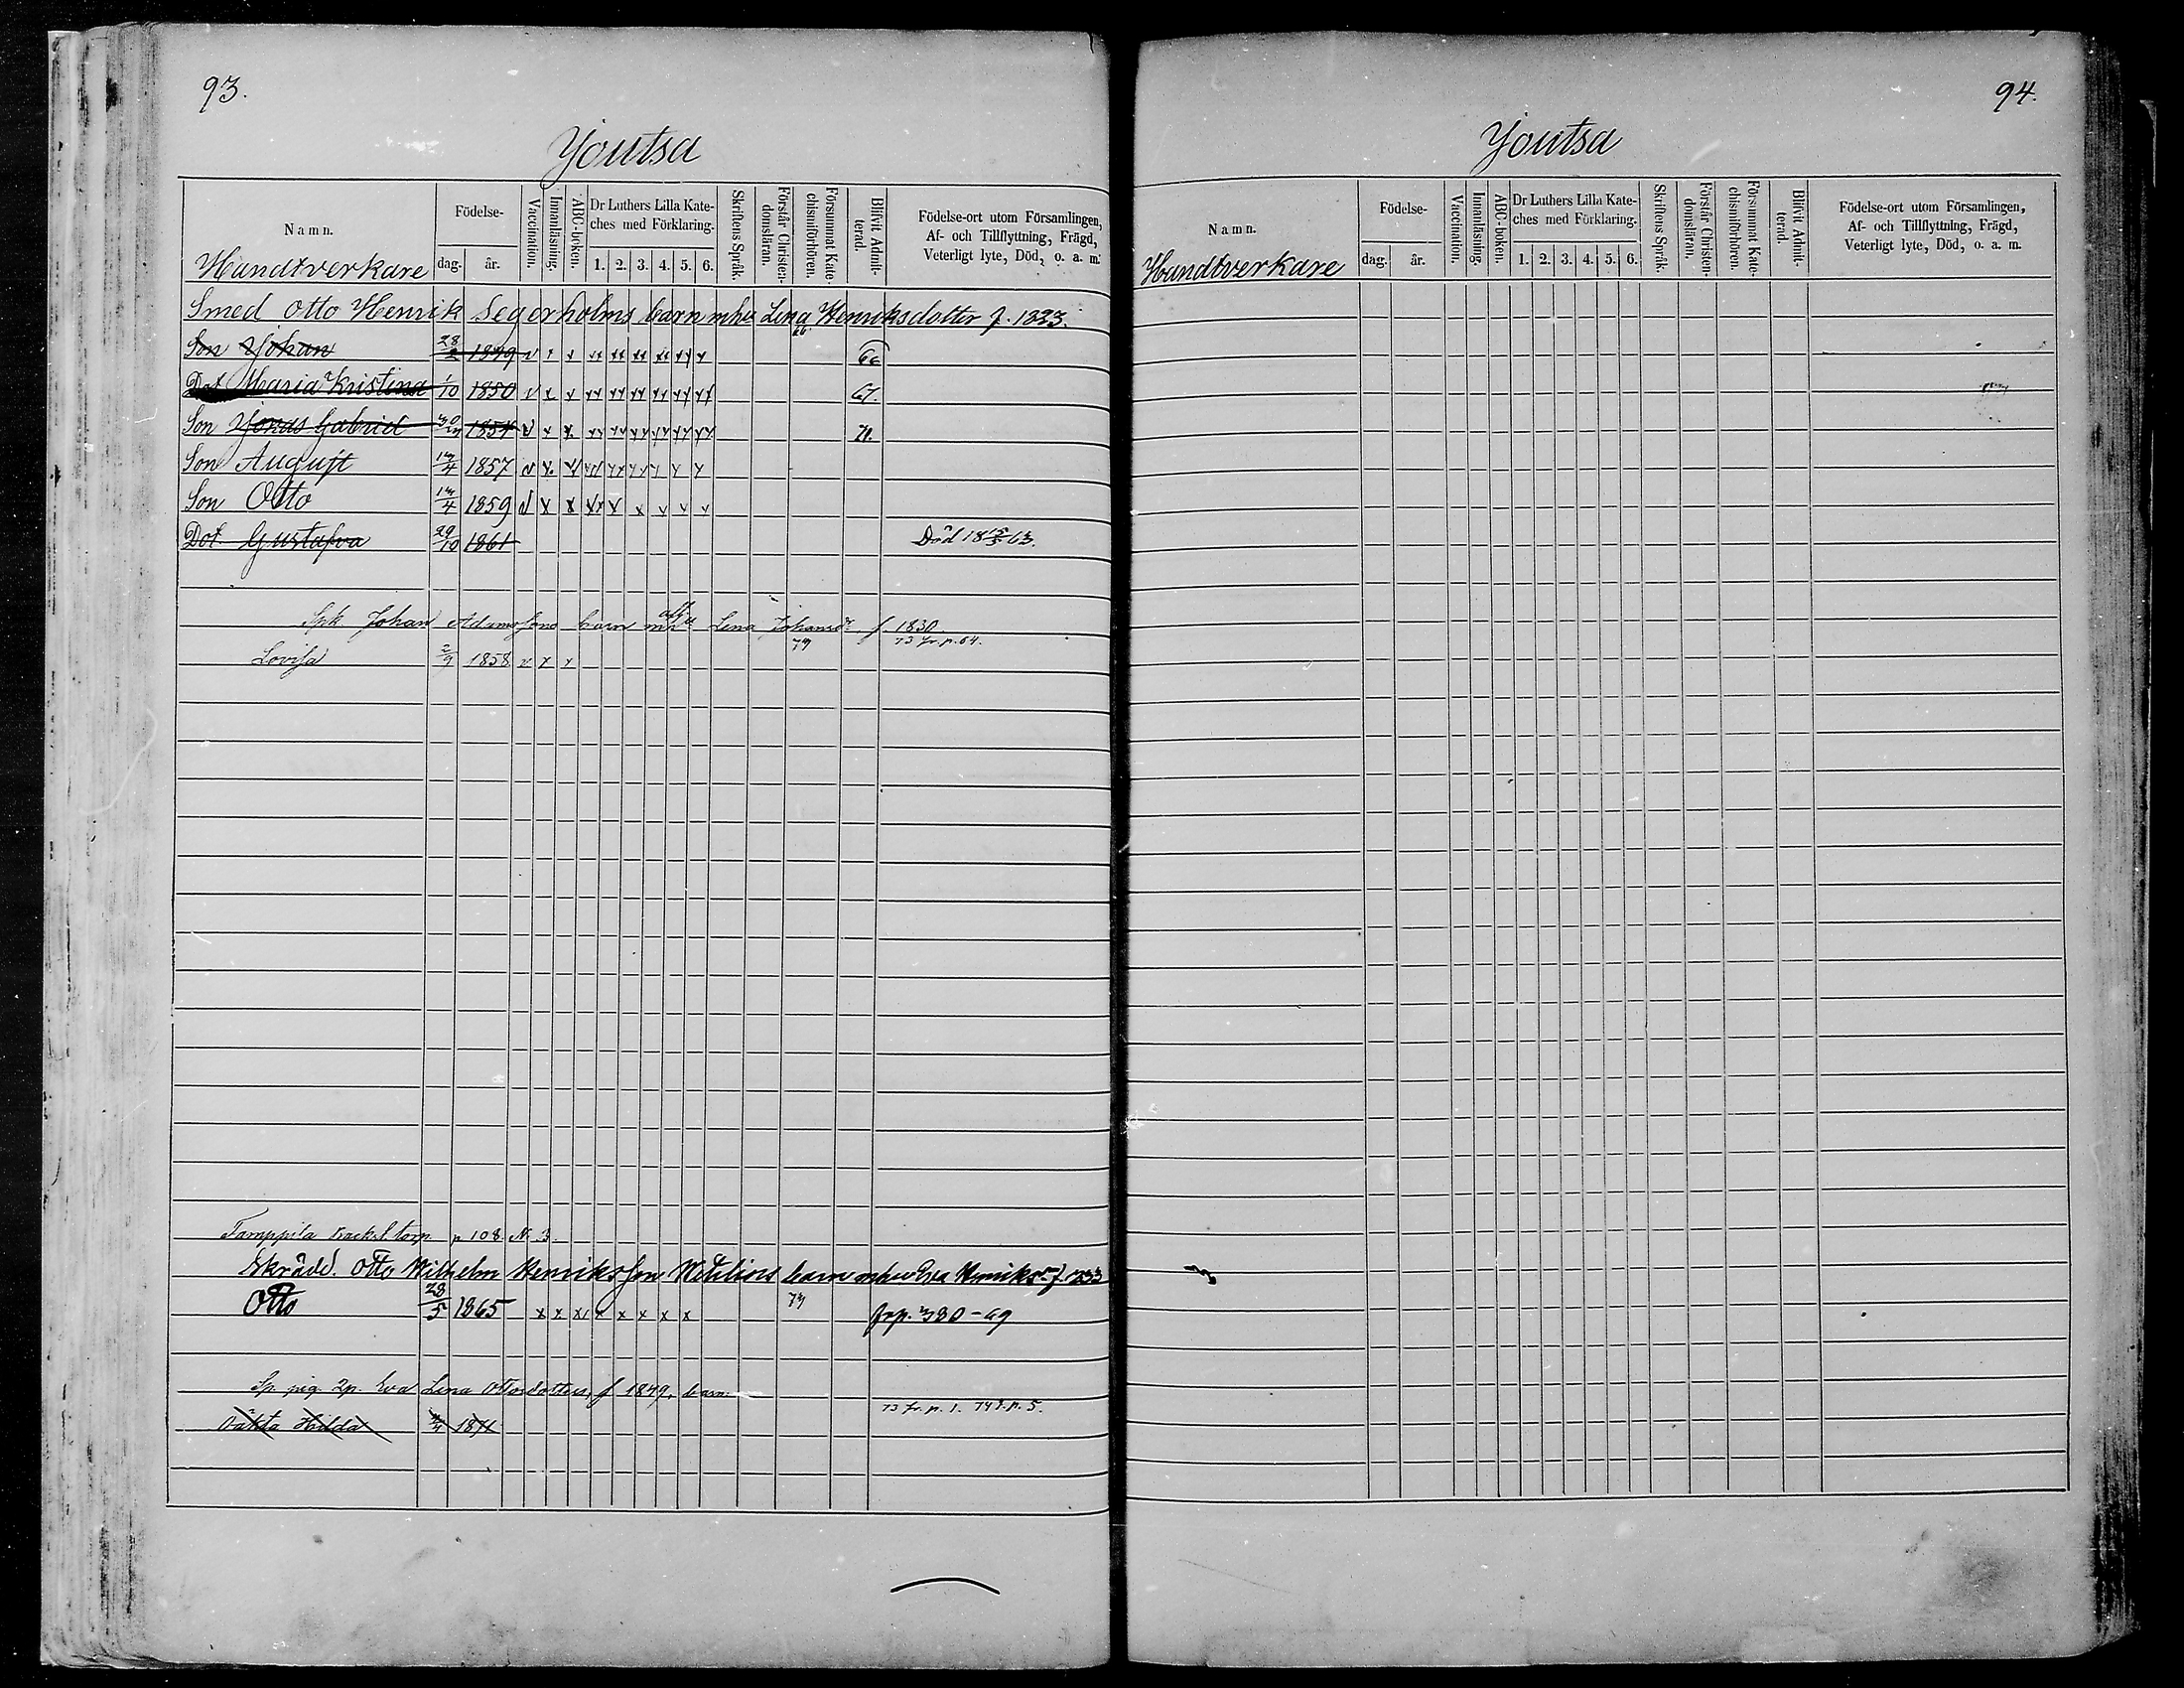 93.
Joutsa
Namn.
Födelse-
dag.
år.
Vaccination.
Innanläsning.
ABC-boken.
Dr Luthers Lilla Kate-
ches med Förklaring.
1. 2. 3. 4. 5. 6.
Skriftens Språk.
Förstår Christen-
domsläran.
Försummat Kate-
chismiförhören.
Blifvit Admit-
terad.
Födelse-ort utom Församlingen,
Af- och Tillflyttning, Frägd,
Veterligt lyte, Död, o. a. m.
Handtverkare
Smed Otto Henrik Segerholms barn mhu Lena Henriksdotter f. 1823.
Son Johan 28/2 1849 66
Dot Maria Kristina 1/10 1850 67.
Son Jonas Gabriel 1854 71.
Son August 13/4 1857
Son Otto 13/4 1859
Dot. Gustafva 29/10 1861 Död 18 63.
Johan Adamssons barn Lena Johansd. f 1830
73 fr. p. 64.
Lovisa 2/9 1858
p 108 N. 3.
Skrädd. Otto Wilhelm Henriksson barn mhu Eva Henriksd. f. 1833
Otto 28/5 1865 73 frp. 380-69
Eva Lena Ottosdotters, f 1849, barn:
73 fr. p. 1. 74 t. p. 5.
Oäkta Hilda 1871
94.
Joutsa
Namn.
Födelse-
dag.
år.
Vaccination.
Innanläsning.
ABC-boken.
Dr Luthers Lilla Kate-
ches med Förklaring.
1. 2. 3. 4. 5. 6.
Skriftens Språk.
Förstår Christen-
domsläran.
Försummat Kate-
chismiförhören.
Blifvit Admit-
terad.
Födelse-ort utom Församlingen,
Af- och Tillflyttning, Frägd,
Veterligt lyte, Död, o. a. m.
Handtverkare